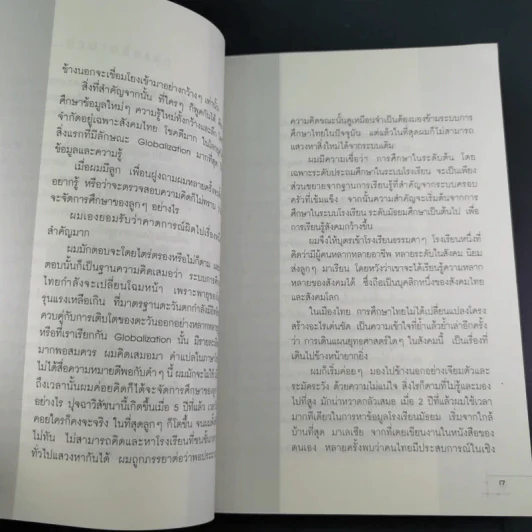 ข้างนอกจะเชื่อมโยงเข้ามาอย่างกว้างๆ เท่านั้น
สิ่งที่สำคัญจากนั้น ที่ใครๆ ก็พูดกันได้
ศึกษาข้อมูลใหม่ๆ ความรู้ใหม่ทั้งกว้างและลึก
จำกัดอยู่เฉพาะสังคมไทย โชคดีมาก ในโลก
สิ่งแรกที่มีลักษณะ Globalization มากที่สุด
ข้อมูลและความรู้
เมื่อผมมีลูก เพื่อนฝูงถามผมหลายครั้ง
อยากรู้ หรือว่าจะตรวจสอบความคิดก็ไม่ทราบ
จะจัดการศึกษาของลูกๆ อย่างไร
ผมเองยอมรับว่าคาดการณ์ผิดไปเรื่อง
สำคัญมาก
ผมมักตอบจะโดยไตร่ตรองหรือไม่ก็ตาม
ตอบนั้นก็เป็นฐานความคิดเสมอว่า ระบบการ
ไทยกำลังจะเปลี่ยนโฉมหน้า เพราะพายุของ
รุนแรงเหลือเกิน ที่มาตรฐานตะวันตกกำลัง
ควบคู่กับการเติบโตของตะวันออกอย่างหลาก
หรือที่เราเรียกกัน Globalization นั้น มีราย
มากพอสมควร ผมคิดเสมอมา คำแปลในภาษา
ไม่ได้สื่อความหมายดีพอกับคำๆ นี้ ผมมักจะไม่ใช้
ถึงเวลานั้นผมค่อยคิดก็ได้จะจัดการศึกษาของ
อย่างไร ปุจฉาวิสัชนานี้เกิดขึ้นเมื่อ 5 ปีที่แล้ว
คอยใครก็คงจะจริง ในที่สุดลูกๆ ก็โตขึ้น จนผม
ไม่ทัน ไม่สามารถคิดและหาโรงเรียนที่
ทั่วไปแสวงหากันได้ ผมถูกภรรยาต่อว่าพอประมาณ
ความคิดขณะนั้นดูเหมือนจำเป็นต้องมองข้ามระบบการ
ศึกษาไทยในปัจจุบัน แต่แล้วในที่สุดผมก็ไม่สามารถ
แสวงหาสิ่งใหม่ได้จากระบบเดิม
ผมมีความเชื่อว่า การศึกษาในระดับต้น โดย
เฉพาะระดับประถมศึกษาในระบบโรงเรียน จะเป็นเพียง
ส่วนขยายจากฐานการเรียนรู้ที่สำคัญจากระบบครอบ
ครัวที่เข้มแข็ง จากนั้นความสำคัญจะเริ่มต้นจากการ
ศึกษาในระบบโรงเรียน ระดับมัธยมศึกษาเป็นต้นไป เพื่อ
การเรียนรู้สังคมกว้างขึ้น
ผมจึงให้บุตรเข้าโรงเรียนธรรมดาๆ โรงเรียนหนึ่งที่
คิดว่ามีผู้คนหลากหลายอาชีพ หลายระดับในสังคม นิยม
ส่งลูกๆ มาเรียน โดยหวังว่าเขาจะได้เรียนรู้ความหลาก
หลายของสังคมได้ ซึ่งถือเป็นบุคลิกหนึ่งของสังคมไทย
และสังคมโลก
ในเมืองไทย การศึกษาไทยไม่ได้เปลี่ยนแปลงโครง
สร้างอะไรเด่นชัด เป็นความเข้าใจที่ย้ำแล้วย้ำเล่าอีกครั้ง
ว่า การเดินแผนยุทธศาสตร์ใดๆ ในสังคมนี้ เป็นเรื่องที่
เดินไปข้างหน้ายากยิ่ง
ผมก็เริ่มค่อยๆ มองไปข้างนอกอย่างเจียมตัวและ
ระมัดระวัง ด้วยความไม่แน่ใจ สิ่งไรก็ตามที่ไม่รู้และมอง
ไปที่สูง มักน่าหวาดกลัวเสมอ เมื่อ 2 ปีที่แล้วผมใช้เวลา
มากทีเดียวในการหาข้อมูลโรงเรียนมัธยม เริ่มจากใกล้
บ้านที่สุด มาเลเซีย จากที่เคยเขียนงานในหนังสือของ
ตนเอง หลายครั้งพบว่าคนไทยมีประสบการณ์ในเชิง
17